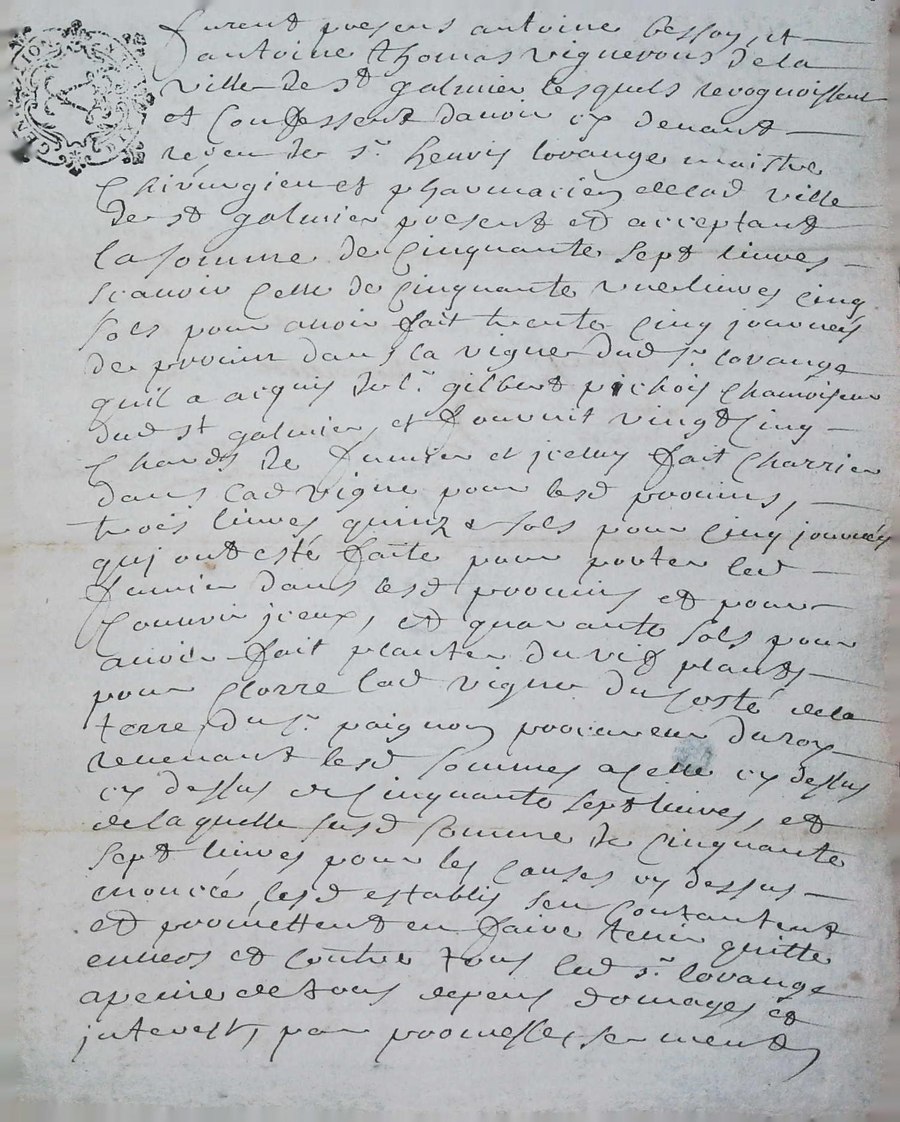 furent presens antoine besson, et
antoine thomas vignerons de la
ville de st galmier lesquels recognoissent
et Confessent davoir cy devant
receu de sr. henris lorange maistre
Chirurgien et pharmacien de lad ville
de st galmier present et acceptant
la somme de Cinquante sept livres
scavoir Celle de Cinquante une livres cinq
sols pour avoir fait trente Cinq journees
de provins dans la vigne dud sr. lorange
quil a acquis de sr. gilbert pichois Chamoiseur
dud st galmier, et fournit vingt Cinq
Chards de fumier et jceluy fait Charrier
dans lad vigne pour lesd provins,
trois livres quinze sols pour Cinq journées
quj ont esté faite pour porter led
fumier dans lesd provins et pour
Couvrir jceux, et quarante sols pour
avoir fait planter du vif plants
pour Clorre lad vigne du Costé de la
terre du sr. paignon procureur du roy
revenant lesd sommes a Celle cy dessus
cy dessus de Cinquante sept livres, et
de laquelle susd somme de Cinquante
sept livres pour les Causes cy dessus
enoncée, lesd establis sen Contantent
et promettent en faire tenir quitte
envers et Contre tous led sr. lorange
a peine de tous depens domages et
jnterest, par promesse, serment